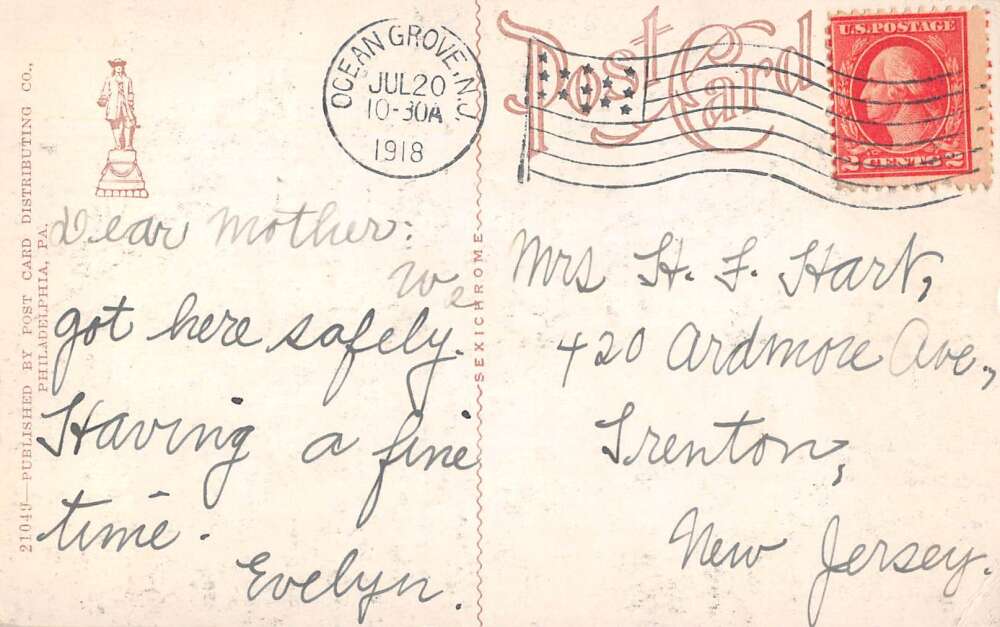 21049—PUBLISHED BY POST CARD DISTRIBUTING CO.,
PHILADELPHIA, PA.
OCEAN GROVE, N.J.
JUL 20
10-30A
1918
Post Card
U.S. POSTAGE
2 CENTS 2
Dear Mother:
We
got here safely.
Having a fine
time.
Evelyn.
SEXICHROME
Mrs H. F. Hart,
420 Ardmore Ave.,
Trenton,
New Jersey.